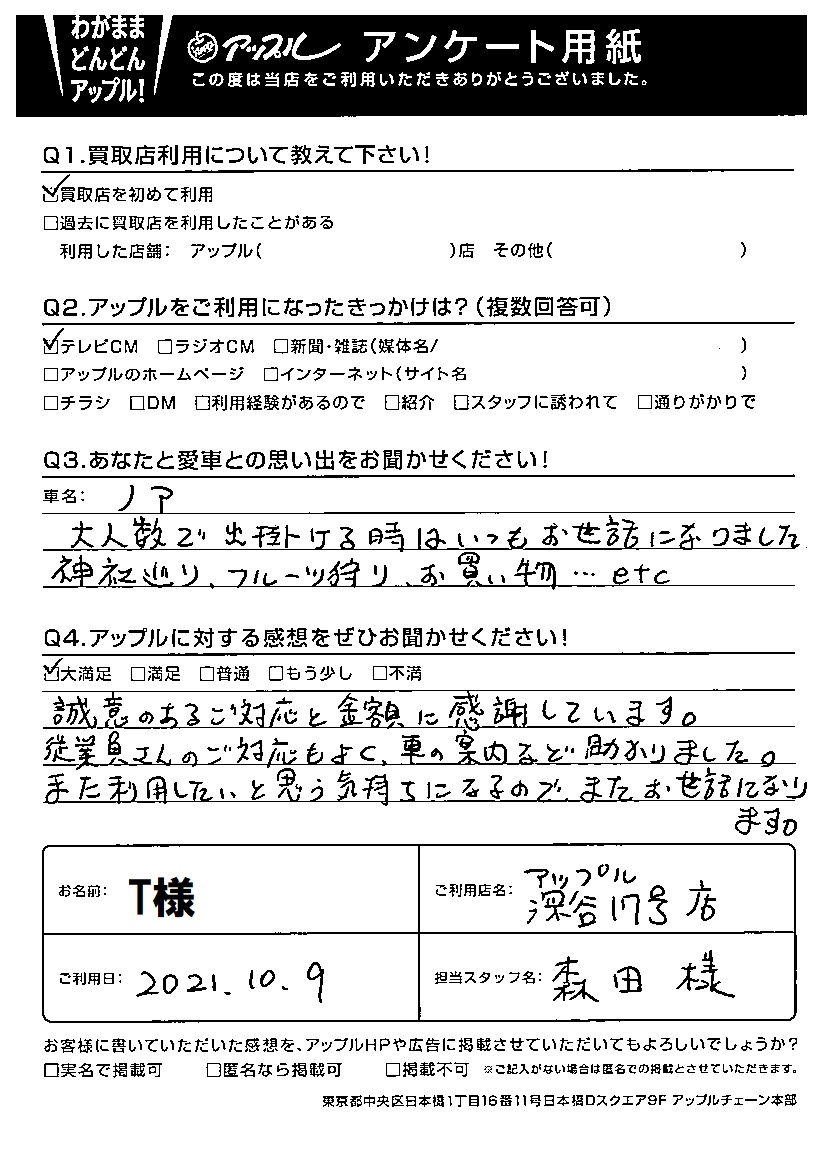 わがまま
どんどん
アップル!
アップル アンケート用紙
この度は当店をご利用いただきありがとうございました。
Q1.買取店利用について教えて下さい!
☑買取店を初めて利用
□過去に買取店を利用したことがある
利用した店舗: アップル( )店 その他( )
Q2.アップルをご利用になったきっかけは?(複数回答可)
☑テレビCM □ラジオCM □新聞・雑誌(媒体名/ )
□アップルのホームページ □インターネット(サイト名 )
□チラシ □DM □利用経験があるので □紹介 □スタッフに誘われて □通りがかりで
Q3.あなたと愛車との思い出をお聞かせください!
車名: ノア
大人数で出掛ける時はいつもお世話になりました
神社巡り、フルーツ狩り、お買い物…etc
Q4.アップルに対する感想をぜひお聞かせください!
☑大満足 □満足 □普通 □もう少し □不満
誠意のあるご対応と金額に感謝しています。
従業員さんのご対応もよく、車の案内など助かりました。
また利用したいと思う気持ちになるので、またお世話になり
ます。
お名前: T様
ご利用店名: アップル
深谷17号店
ご利用日: 2021.10.9
担当スタッフ名: 森田 様
お客様に書いていただいた感想を、アップルHPや広告に掲載させていただいてもよろしいでしょうか?
□実名で掲載可 □匿名なら掲載可 □掲載不可 ※ご記入がない場合は匿名での掲載とさせていただきます。
東京都中央区日本橋1丁目16番11号日本橋Dスクエア9F アップルチェーン本部